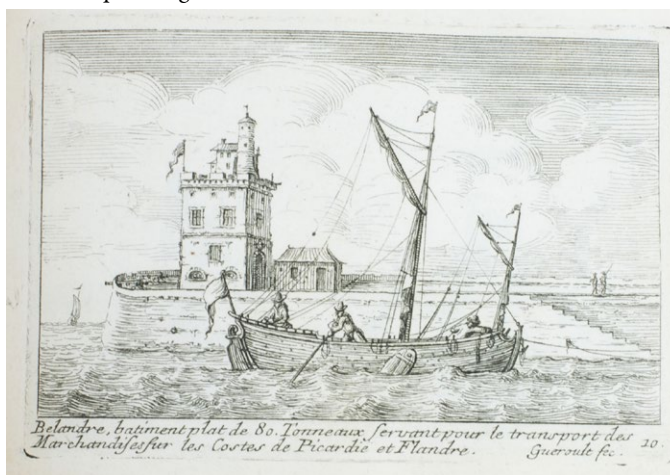 Belandre, batiment plat de 80. Tonneaux servant pour le transport des
Marchandises sur les Costes de Picardie et Flandre. Gueroult fec. 20.